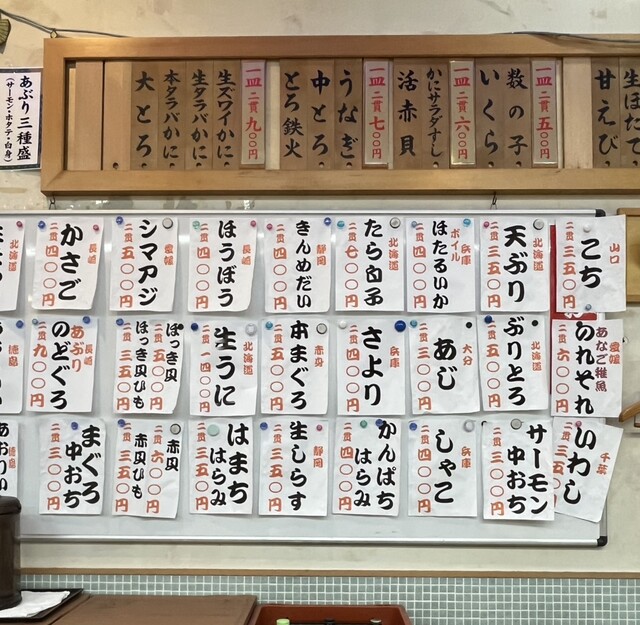 生ほたて
甘えび
一皿 二貫 五〇〇円
数の子
いくら
一皿 二貫 六〇〇円
かにサラダずし
活赤貝
一皿 二貫 七〇〇円
うなぎ
中とろ
とろ鉄火
一皿 二貫 九〇〇円
生ズワイかに
生タラバかに
本タラバかに
大とろ
あぶり三種盛
(サーモン・ホタテ・白身)
山口
こち
二貫 三五〇円
北海道
天ぶり
二貫 三五〇円
兵庫
ボイル
ほたるいか
二貫 四〇〇円
北海道
たら白子
二貫 七〇〇円
静岡
きんめだい
二貫 五〇〇円
長崎
ほうぼう
二貫 四〇〇円
愛媛
シマアジ
二貫 五〇〇円
長崎
かさご
二貫 四〇〇円
北海道
愛媛
あなご稚魚
のれそれ
二貫 六〇〇円
北海道
ぶりとろ
二貫 五〇〇円
大分
あじ
二貫 三〇〇円
兵庫
さより
二貫 四〇〇円
赤身
本まぐろ
二貫 四〇〇円
北海道
生うに
二貫 一四〇〇円
ほっき貝
二貫 五〇〇円
ほっき貝ひも
二貫 三五〇円
長崎
あぶり
のどぐろ
二貫 九〇〇円
徳島
千葉
いわし
二貫 三五〇円
サーモン
中おち
二貫 三〇〇円
兵庫
しゃこ
二貫 四〇〇円
かんぱち
はらみ
二貫 四〇〇円
静岡
生しらす
二貫 三五〇円
はまち
はらみ
二貫 三五〇円
赤貝
二貫 六〇〇円
赤貝ひも
二貫 三五〇円
まぐろ
中おち
二貫 三〇〇円
徳島